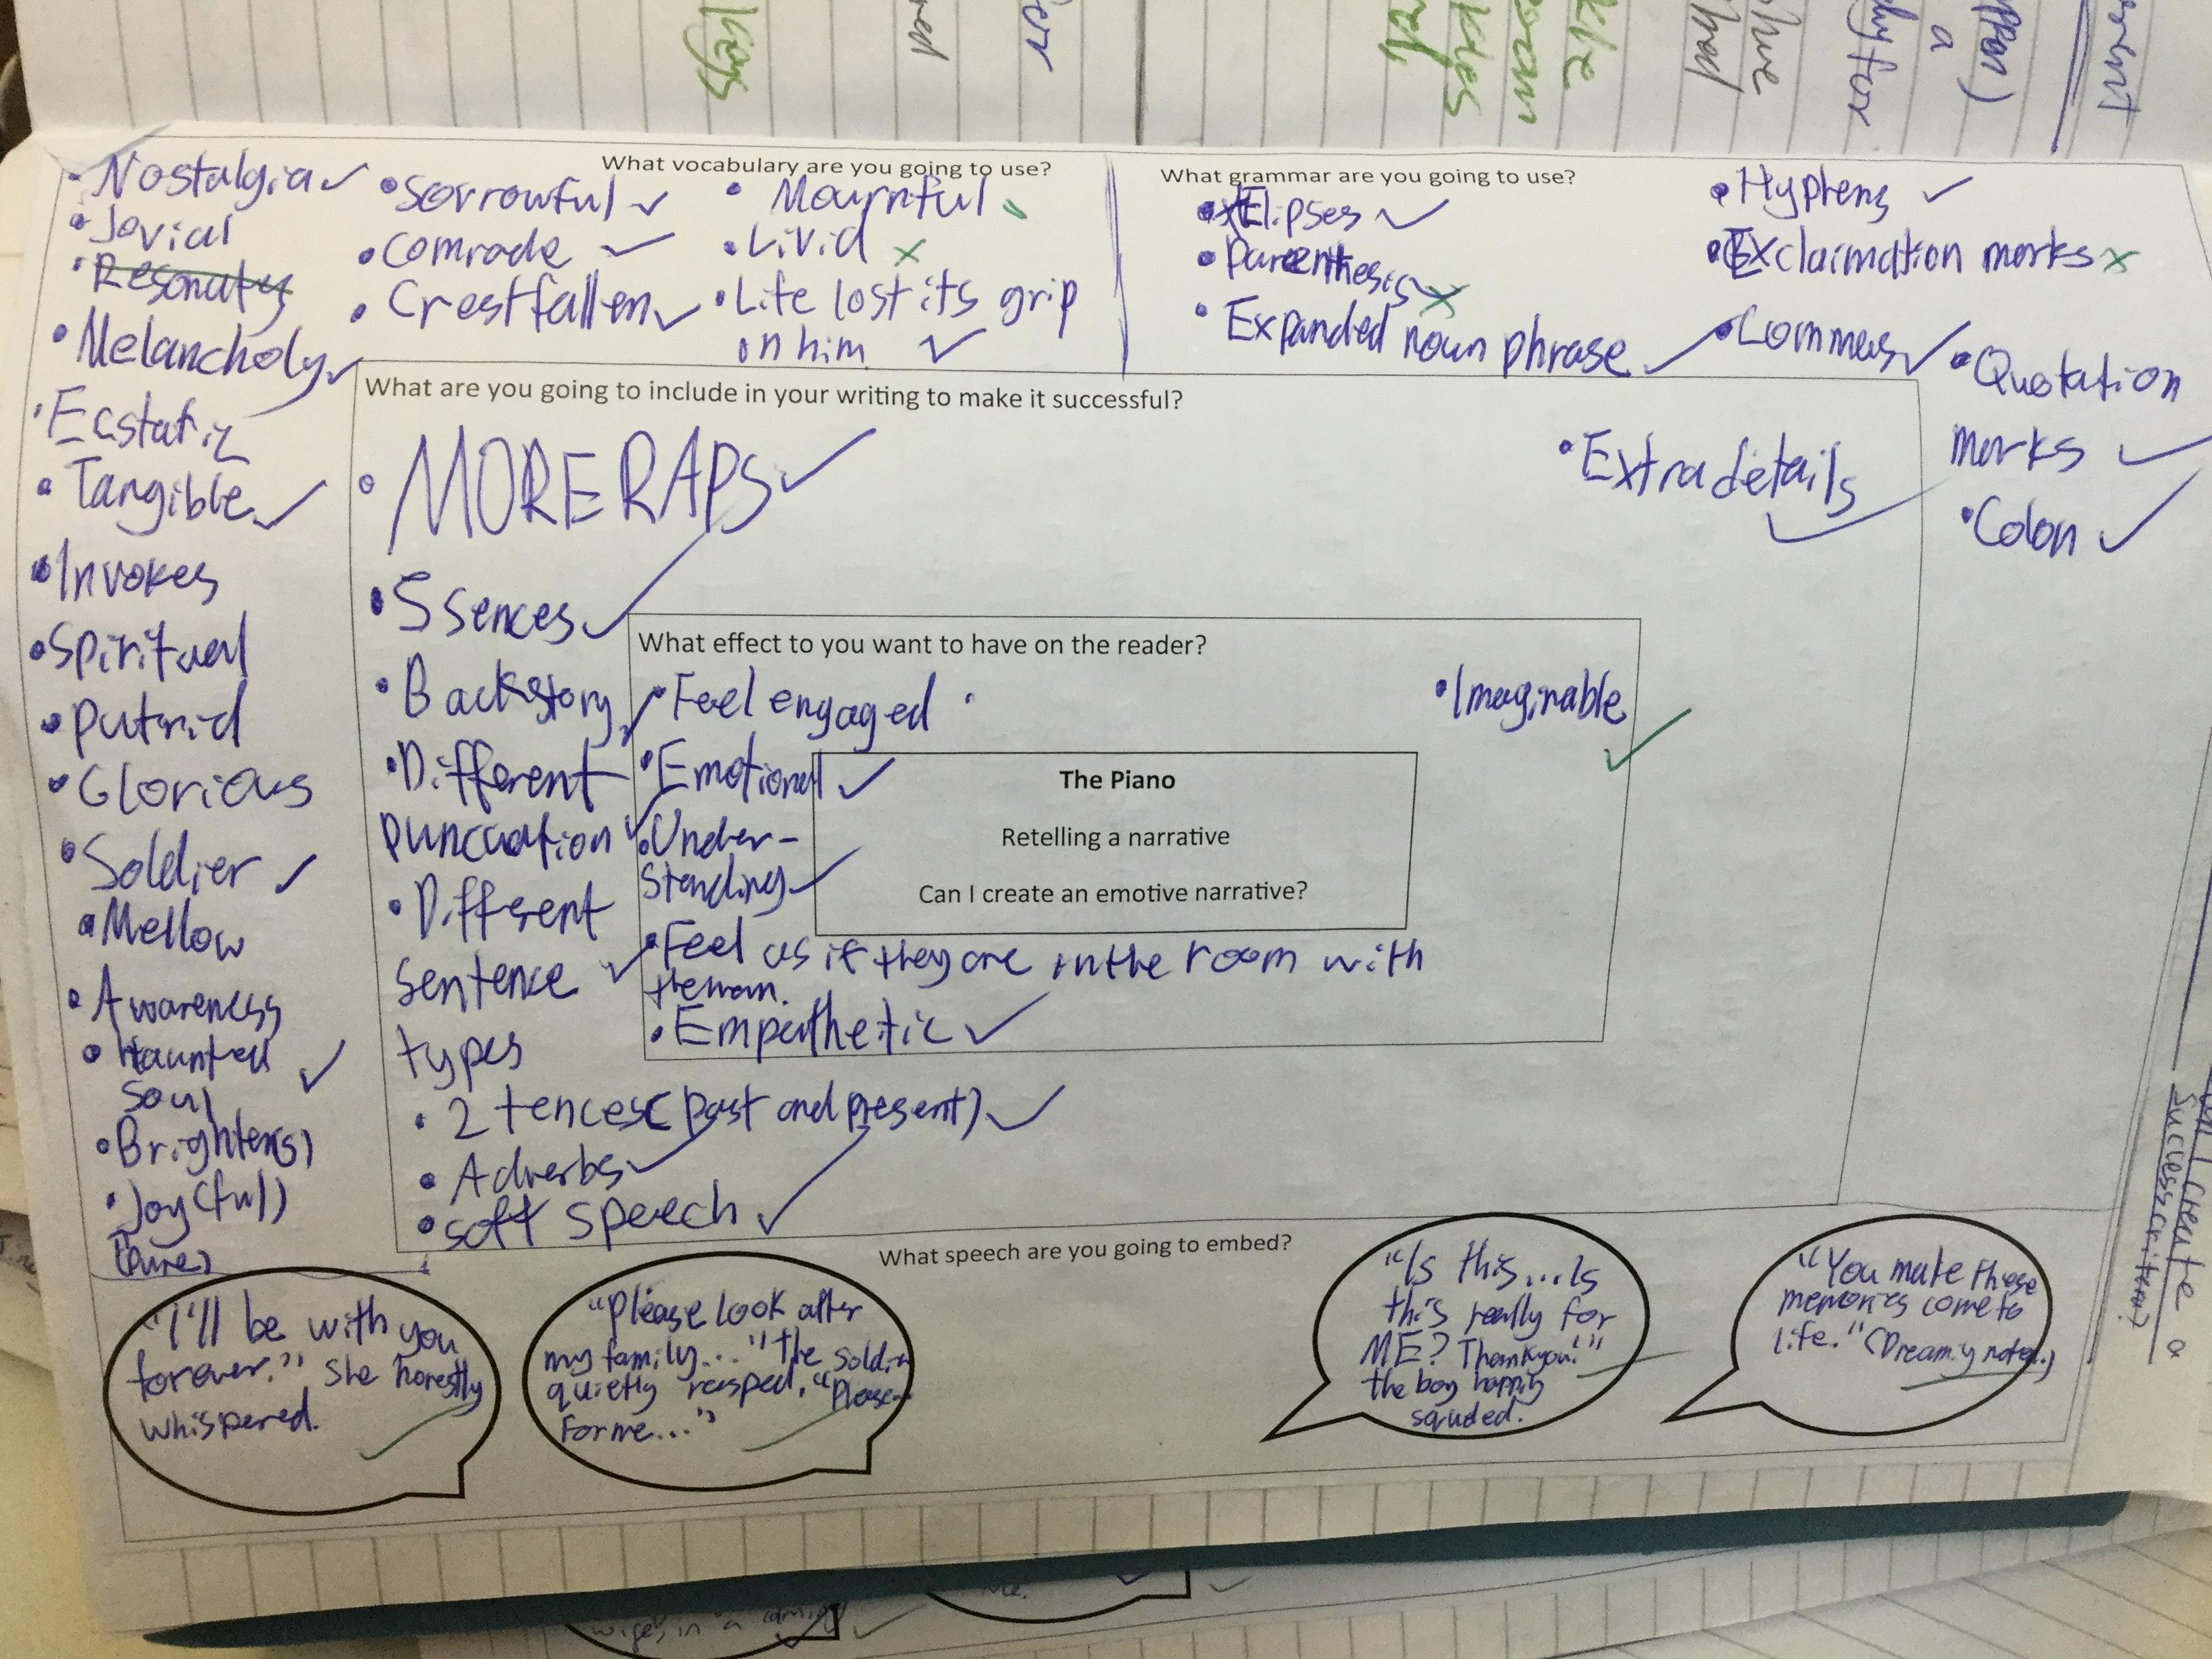 What vocabulary are you going to use?
Nostalgia
Jovial
Resonates
Melancholy
Ecstatic
Tangible
Invokes
Spiritual
Putrid
Glorious
Soldier
Mellow
Awareness
Haunted
Soul
Brighten(s)
Joy(ful)
Sorrowful
Comrade
Crestfallen
Mournful
Livid
Life lost its grip
on him
What grammar are you going to use?
Elipses
Parenthesis
Expanded noun phrase
Hyphens
Exclaimation marks
Commas
Quotation
marks
Colon
What are you going to include in your writing to make it successful?
MORE RAPS
5 sences
Backstory
Different
puncuation
Different
sentence
types
2 tences (past and present)
Adverbs
soft speech
Extra details
What effect to you want to have on the reader?
Feel engaged
Emotional
Under-
standing
Feel as if they are in the room with
the man.
Empathetic
Imaginable
The Piano
Retelling a narrative
Can I create an emotive narrative?
What speech are you going to embed?
"I'll be with you
forever." She honestly
whispered.
"Please look after
my family..." the soldier
quietly rasped, "Please
for me..."
"Is this...Is
this really for
ME? Thankyou!"
the boy happily
"You make these
memories come to
life." (Dreamy notes.)